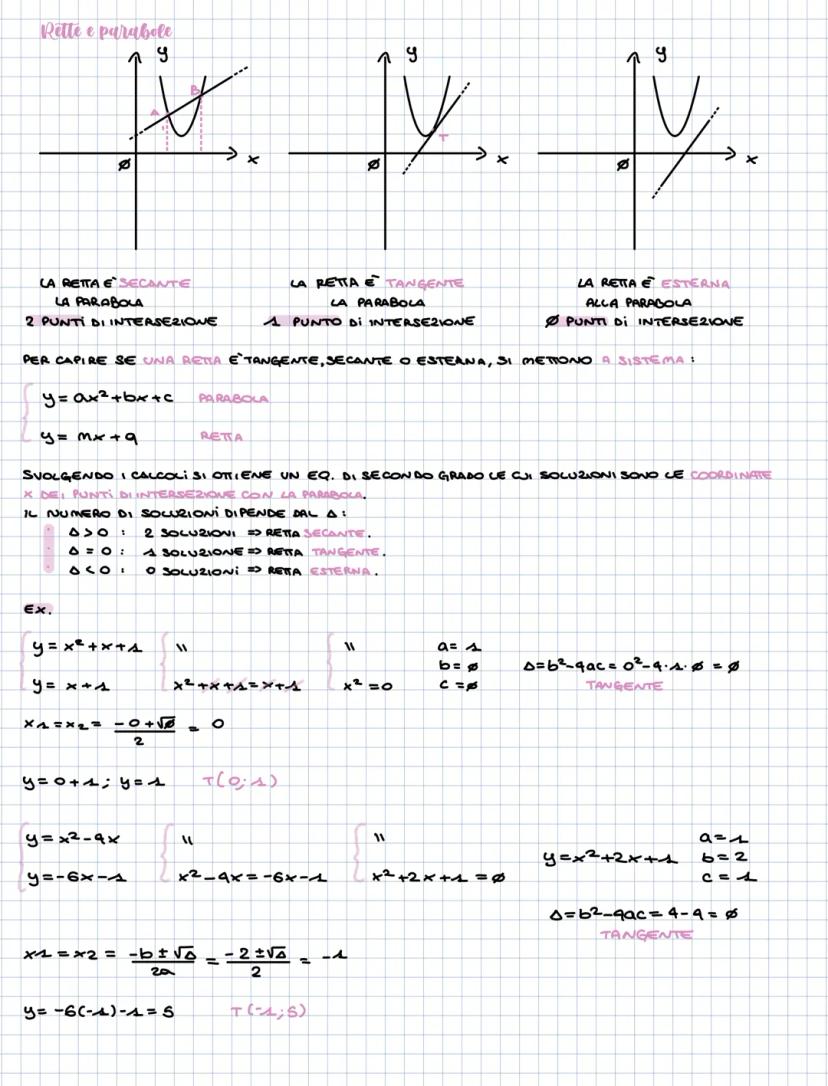 Rette e parabole
y y y
A B T
x x x
Ø Ø Ø
LA RETTA È SECANTE
LA PARABOLA
2 PUNTI DI INTERSEZIONE
LA RETTA È TANGENTE
LA PARABOLA
1 PUNTO DI INTERSEZIONE
LA RETTA È ESTERNA
ALLA PARABOLA
Ø PUNTI DI INTERSEZIONE
PER CAPIRE SE UNA RETTA È TANGENTE, SECANTE O ESTERNA, SI METTONO A SISTEMA:
y = ax²+bx+c PARABOLA
y = mx+q RETTA
SVOLGENDO I CALCOLI SI OTTIENE UN EQ. DI SECONDO GRADO LE CUI SOLUZIONI SONO LE COORDINATE
X DEI PUNTI DI INTERSEZIONE CON LA PARABOLA.
IL NUMERO DI SOLUZIONI DIPENDE DAL Δ:
• Δ>0: 2 SOLUZIONI => RETTA SECANTE.
• Δ=0: 1 SOLUZIONE => RETTA TANGENTE.
• Δ<0: 0 SOLUZIONI => RETTA ESTERNA.
EX.
y = x²+x+1 \\ \\ a= 1
b= Ø Δ=b²-4ac= 0²-4·1·Ø = Ø
y = x+1 x²+x+1=x+1 x²=0 c=Ø TANGENTE
x1=x2= -0+√Ø/2 = 0
y=0+1; y=1 T(0;1)
y=x²-4x \\ \\ a=1
y=x²+2x+1 b=2
y=-6x-1 x²-4x=-6x-1 x²+2x+1=Ø c=1
Δ=b²-4ac=4-4=Ø
TANGENTE
x1=x2= -b±√Δ/2a = -2±√Δ/2 = -1
y=-6(-1)-1=5 T(-1;5)